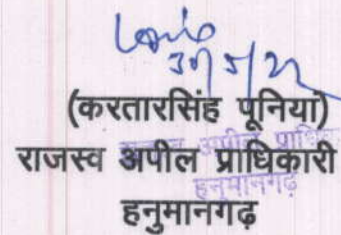 30/5/22
(करतारसिंह पूनिया)
राजस्व अपील प्राधिकारी
हनुमानगढ़